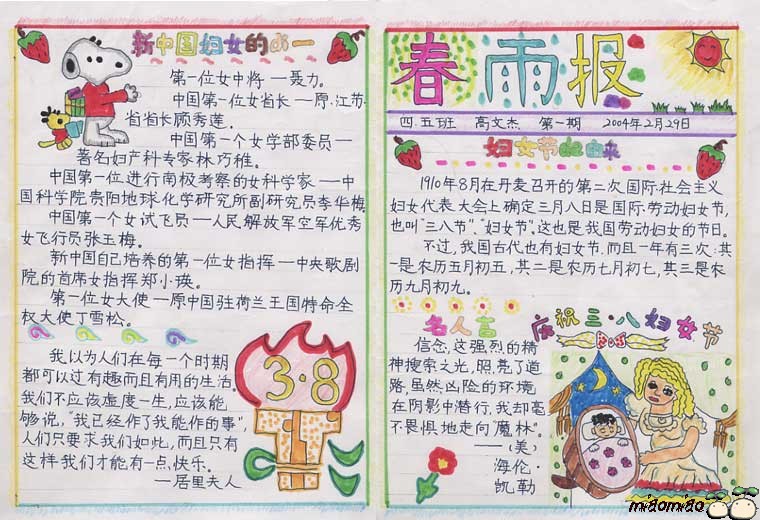 新中国妇女的第一
第一位女中将—聂力。
中国第一位女省长—原·江苏
省省长顾秀莲。
中国第一个女学部委员—
著名妇产科专家林巧稚。
中国第一位进行南极考察的女科学家—中
国科学院贵阳地球化学研究所副研究员李华梅
中国第一个女试飞员—人民解放军空军优秀
女飞行员张玉梅。
新中国自己培养的第一位女指挥—中央歌剧
院的首席女指挥郑小瑛。
第一位女大使—原中国驻荷兰王国特命全
权大使丁雪松。
我以为人们在每一个时期
都可以过有趣而且有用的生活.
我们不应该虚度一生,应该能
够说,“我已经作了我能作的事”,
人们只要求我们如此,而且只有
这样我们才能有一点快乐。
—居里夫人
3·8
春雨报
四.五班 高文杰 第一期 2004年2月29日
妇女节的由来
1910年8月在丹麦召开的第二次国际社会主义
妇女代表大会上确定三月八日是国际劳动妇女节,
也叫“三八节”、“妇女节”。这也是我国劳动妇女的节日。
不过,我国古代也有妇女节.而且一年有三次:其
一是农历五月初五,其二是农历七月初七,其三是农
历九月初九。
名人言
信念,这强烈的精
神搜索之光,照亮了道
路,虽然凶险的环境
在阴影中潜行,我却毫
不畏惧地走向“魔林”。
——(美)
海伦·
凯勒
庆祝三·八妇女节
miaomiao